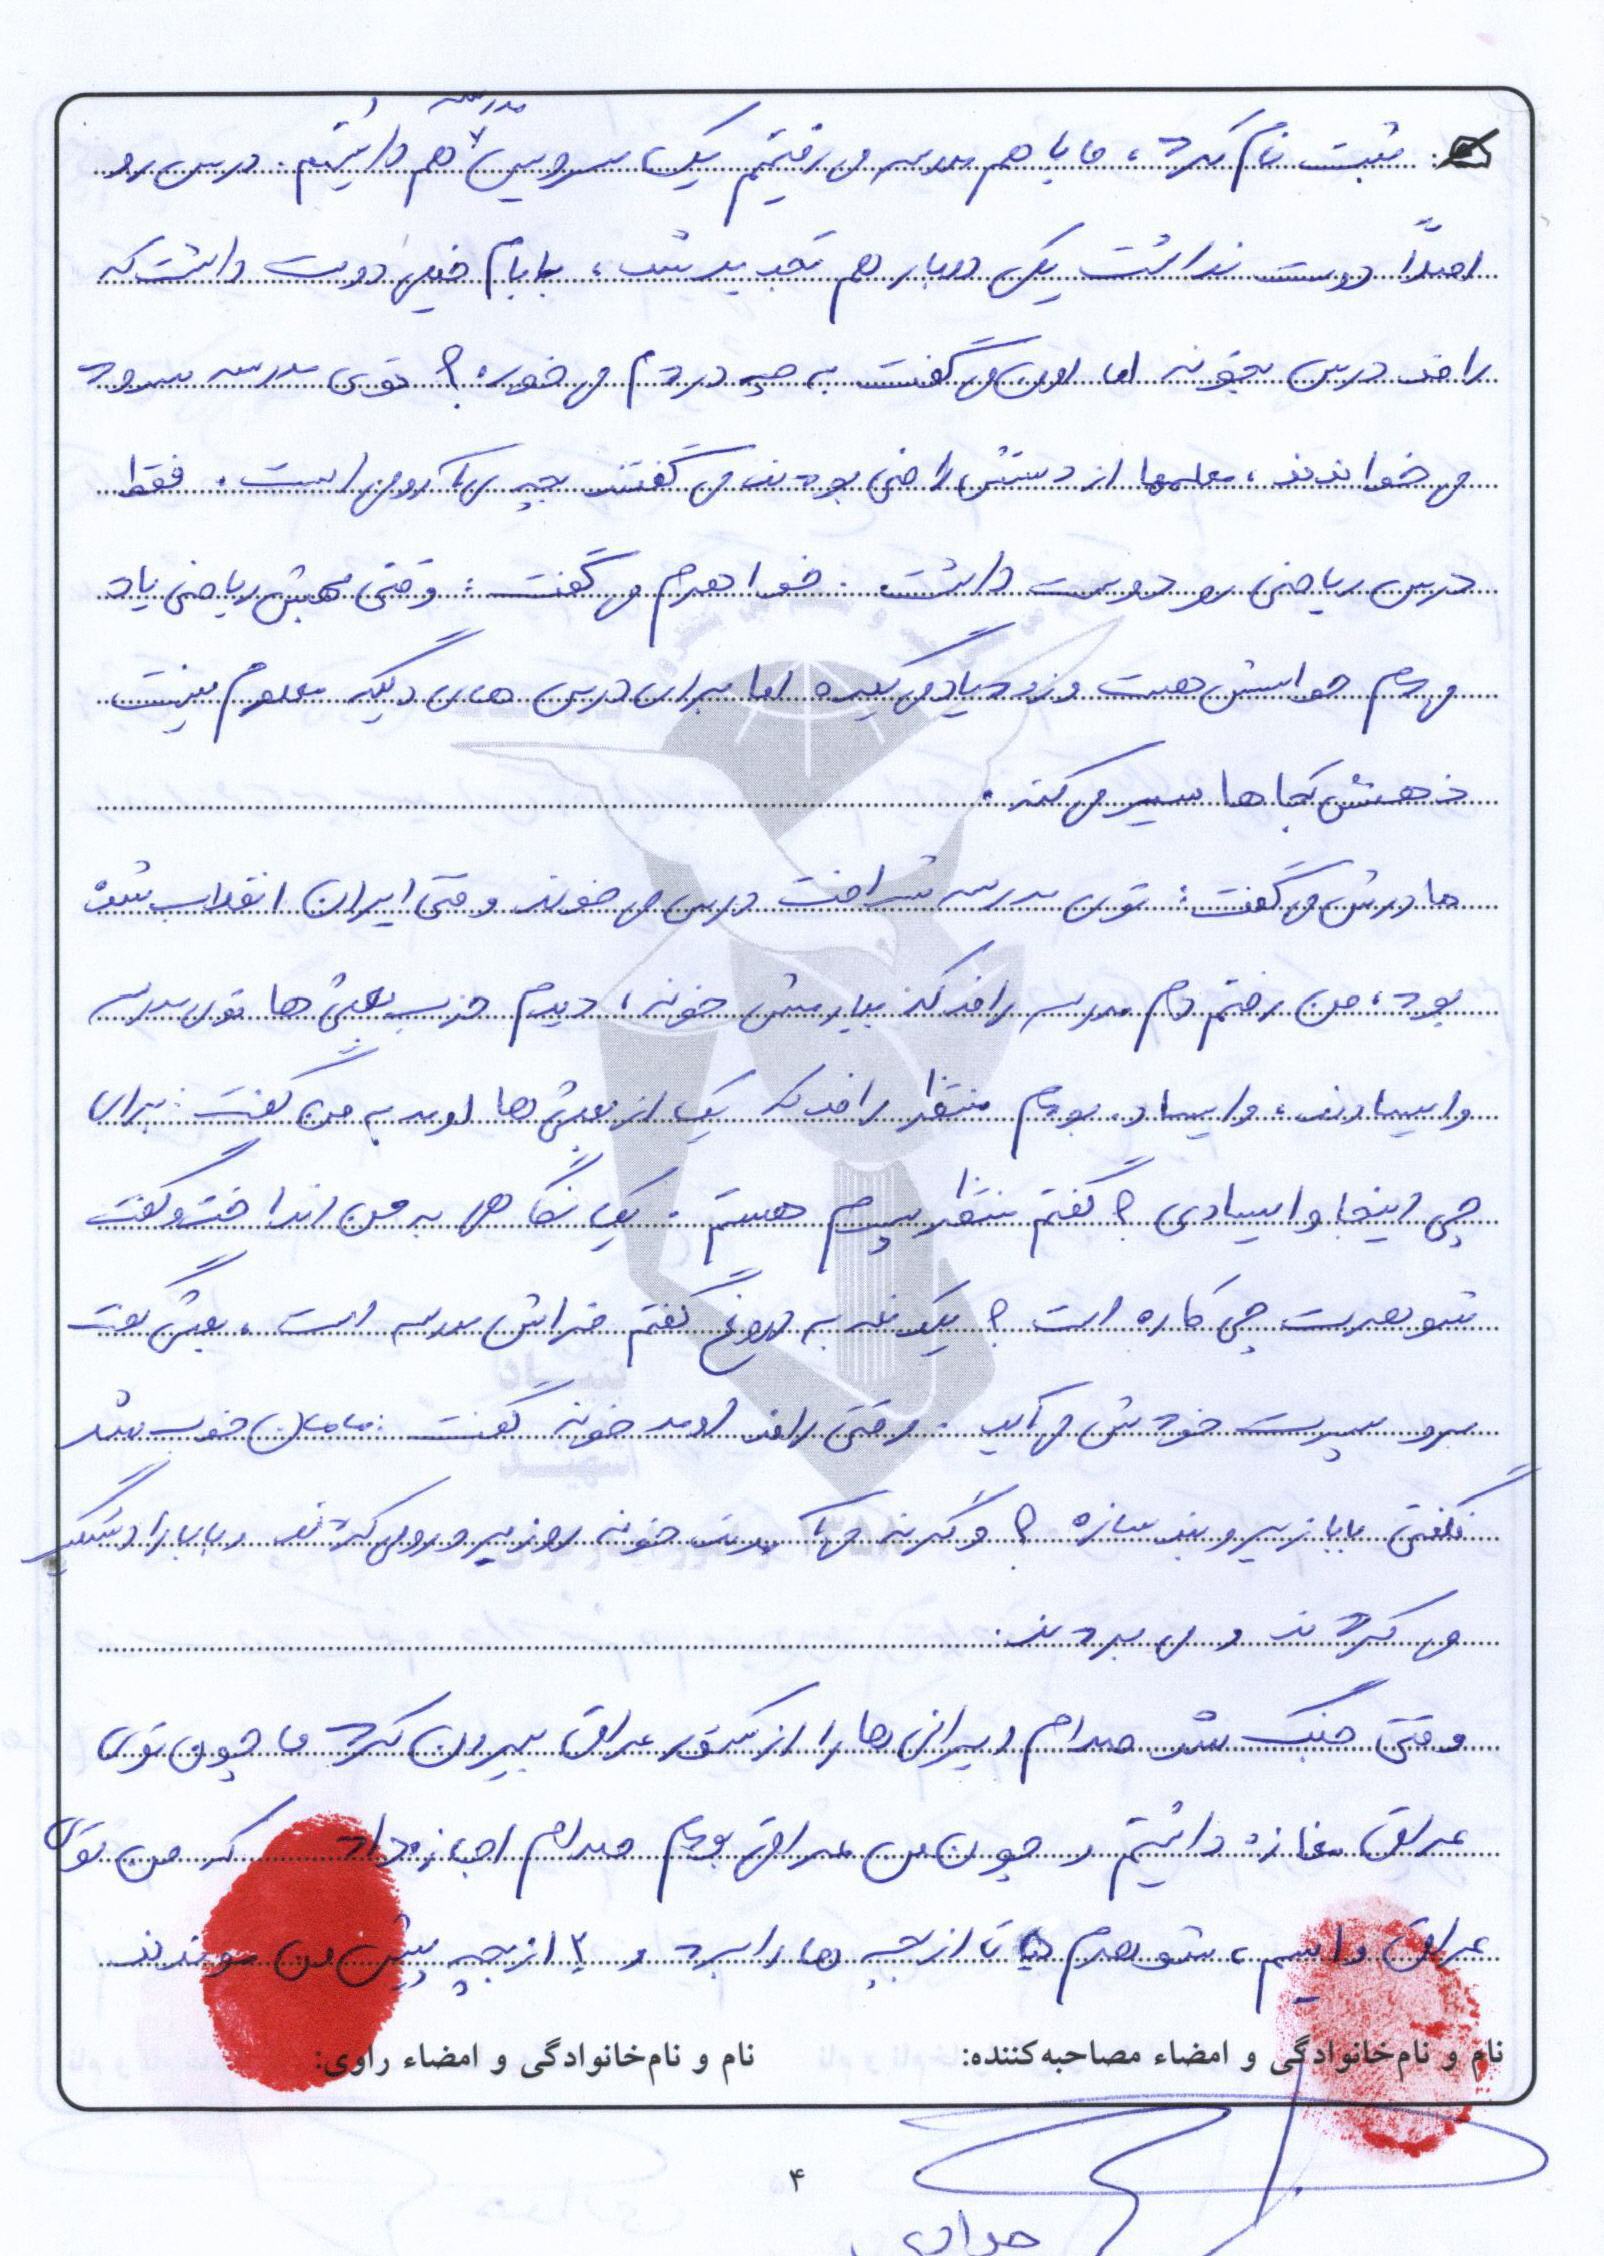 ثبت نام کرد، ما با هم مدرسه می رفتیم یک سرویس مدرسه هم داشتیم. درس رو
اصلاً دوست نداشت یکی دوبار هم تجدید شد، بابام خیلی دوست داشت که
رافد درس بخونه اما اون می گفت به چه دردم می خوره؟ توی مدرسه سرود
می خواندند، معلمها از دستش راضی بودند می گفتند بچه ی آرومی است. فقط
درس ریاضی رو دوست داشت. خواهرم می گفت: وقتی بهش ریاضی یاد
می دم حواسش هست و زود یاد می گیره اما برای درس های دیگه معلوم نیست
ذهنش کجاها سیر می کند.
مادرش می گفت: توی مدرسه شرافت درس می خوند وقتی ایران انقلاب شده
بود، من رفتم دم مدرسه رافد که بیارمش خونه، دیدم حزب بعثی ها توی مدرسه
وایسادند، وایساده بودم منتظر رافد که یکی از بعثی ها اومد به من گفت: برای
چی اینجا وایسادی؟ گفتم منتظر پسرم هستم. یک نگاهی به من انداخت و گفت
شوهرت چی کاره است؟ یکدفعه به دروغ گفتم فراش مدرسه است، بعثی گفت
برو پسرت خودش می آید. وقتی رافد اومد خونه گفت: مامان خوب شد
نگفتی بابا زیر و بند سازه؟ وگرنه می آمدند خونه رو زیر و رو می کردند و بابا را دستگیر
می کردند و می بردند.
وقتی جنگ شد صدام ایرانی ها را از کشور عراق بیرون کرد ما چون توی
عراق مغازه داشتیم و چون من عراقی بودم صدام اجازه داد که من توی
عراق وایسم، شوهرم تا از بچه ها را برد و ۲ از بچه پیش من موندند
نام و نام‌خانوادگی و امضاء مصاحبه‌کننده: نام و نام‌خانوادگی و امضاء راوی:
۴